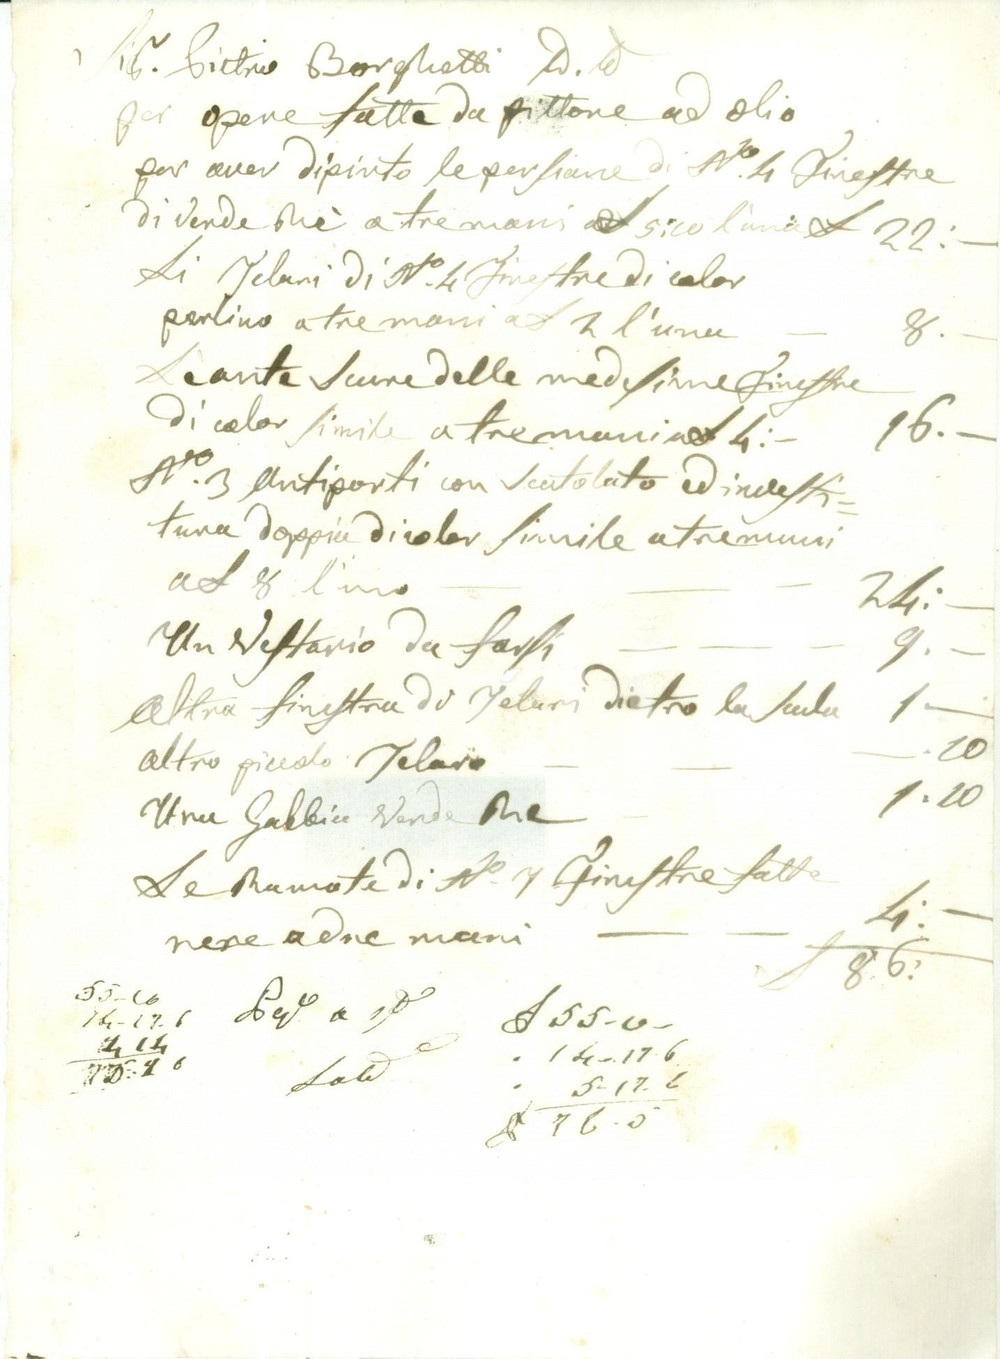 Sig.r Pietro Borghetti D. D
per opere fatte da pittore ad olio
per aver dipinto le persiane di N.o 4 Finestre
di verde Rhè a tre mani a £ 5:10 l'una £ 22:—
Li Telari di N.o 4 Finestre di color
perlino a tre mani a £ 2 l'una — 8.—
Le ante scure delle medesime Finestre
di color simile a tre mani a £ 4:— 16.—
N.o 3 Antiporti con scatolato ed investi=
tura doppia di color simile a tre mani
a £ 8 l'uno — — — 24:—
Un Vestario da farsi — — — 9.—
altra finestra di Telari dietro la scala 1—
altro piccolo Telaro — — — .10
Una Gabbia Verde Rhe 1.10
Le Ramate di N.o 7 Finestre fatte
nere a due mani — — 4:—
£ 86:
55-10
14-17.6
£ 55-10-
. 14-17 6
. 5-17.6
£ 76-5
Sald